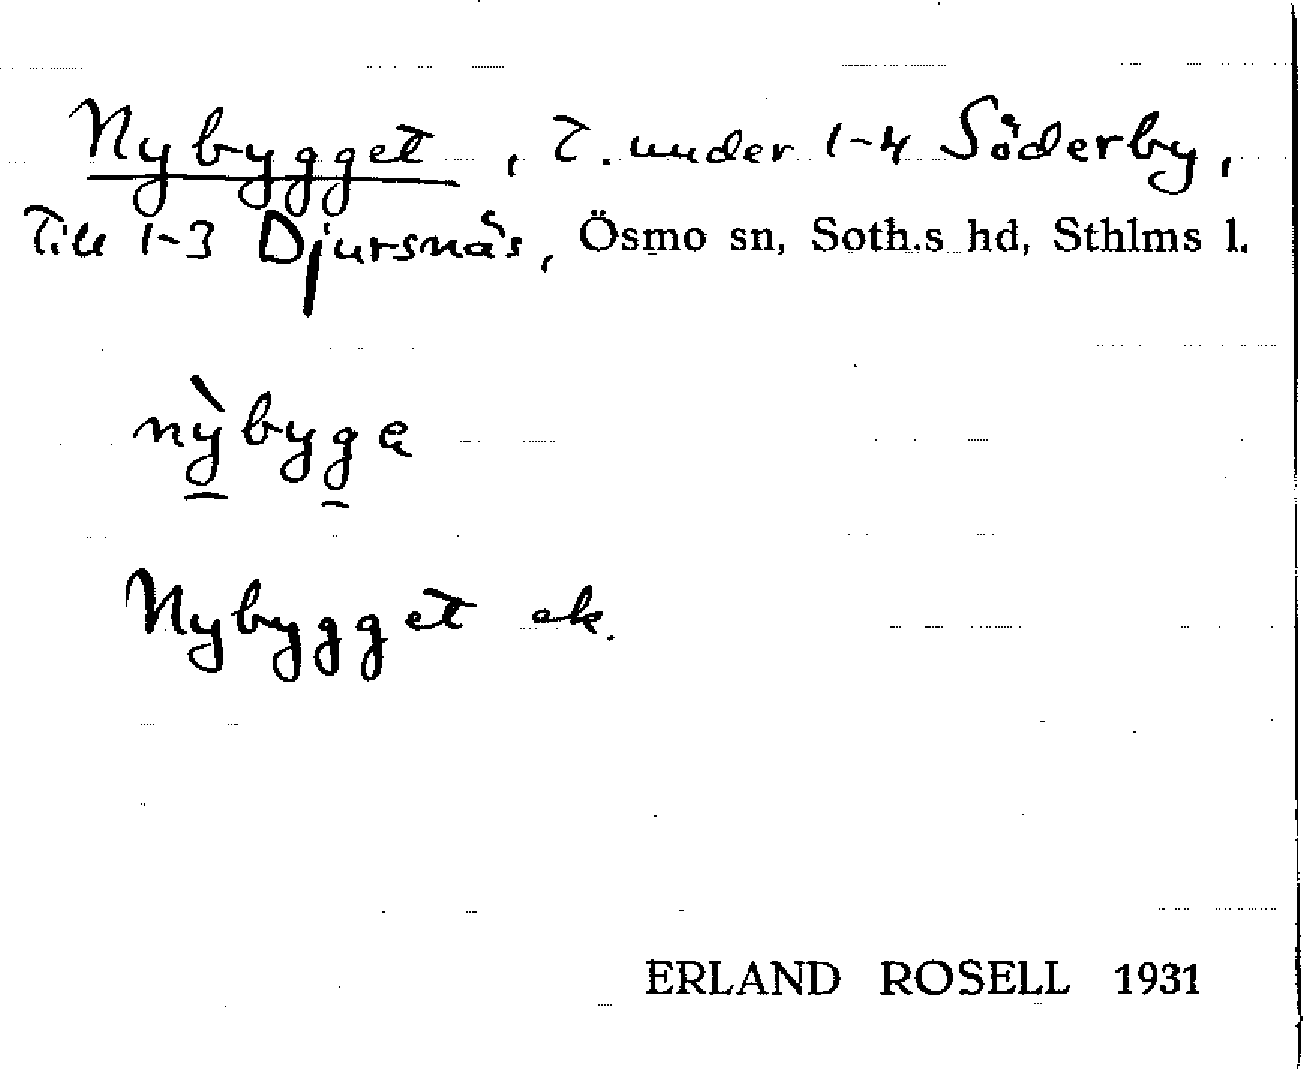 Nybygget, T. under 1-4 Söderby,
Till 1-3 Djursnäs, Ösmo sn, Soth.s hd, Sthlms l.
nỳbygę
Nybygget ek.
ERLAND ROSELL 1931